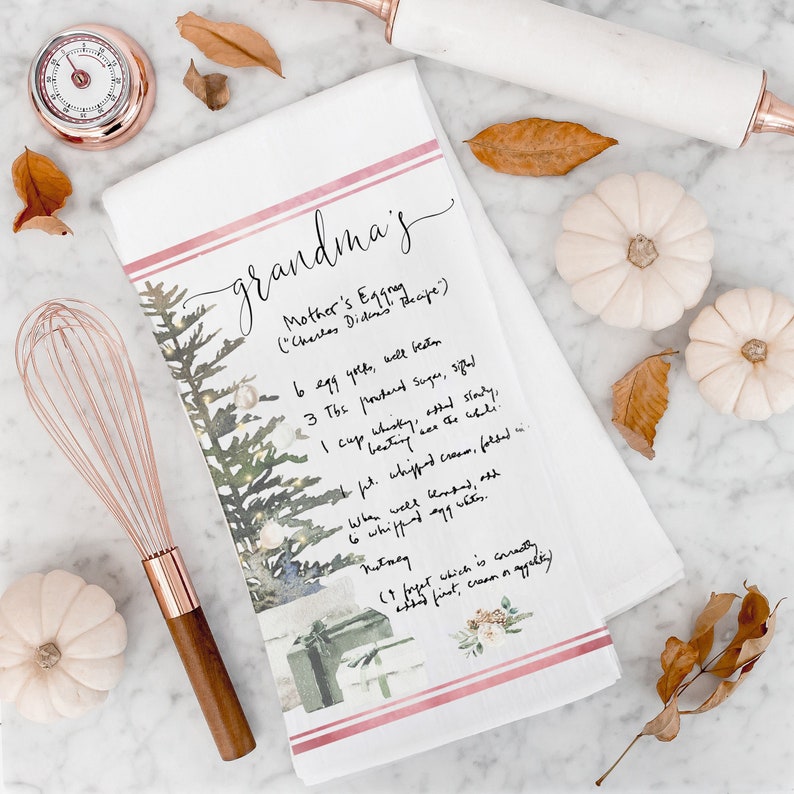 grandma's
Mother's Eggnog
("Charles Dickens" Recipe")
6 egg yolks, well beaten
3 Tbs. powdered sugar, sifted
1 cup whisky, added slowly,
beating all the while.
1 pt. whipped cream, folded in.
When well blended, add
6 whipped egg whites.
Nutmeg
(I forget which is correctly
added first, cream or eggwhites)
55 0 5 10 15 20 25 30 35 40 45 50